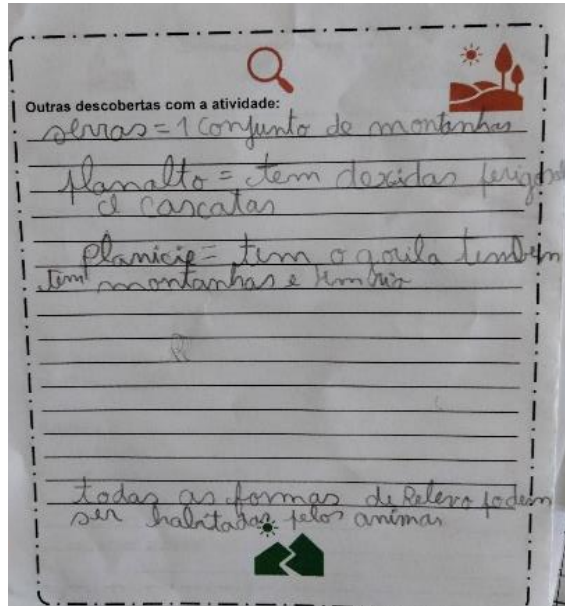 Outras descobertas com a atividade:
serras = 1 conjunto de montanhas
planalto = tem dexidas perigosas
e cascatas
planicie = tem o gorila tembem
tem montanhas e
todas as formas de Relevo podem
ser habitadas pelos animas